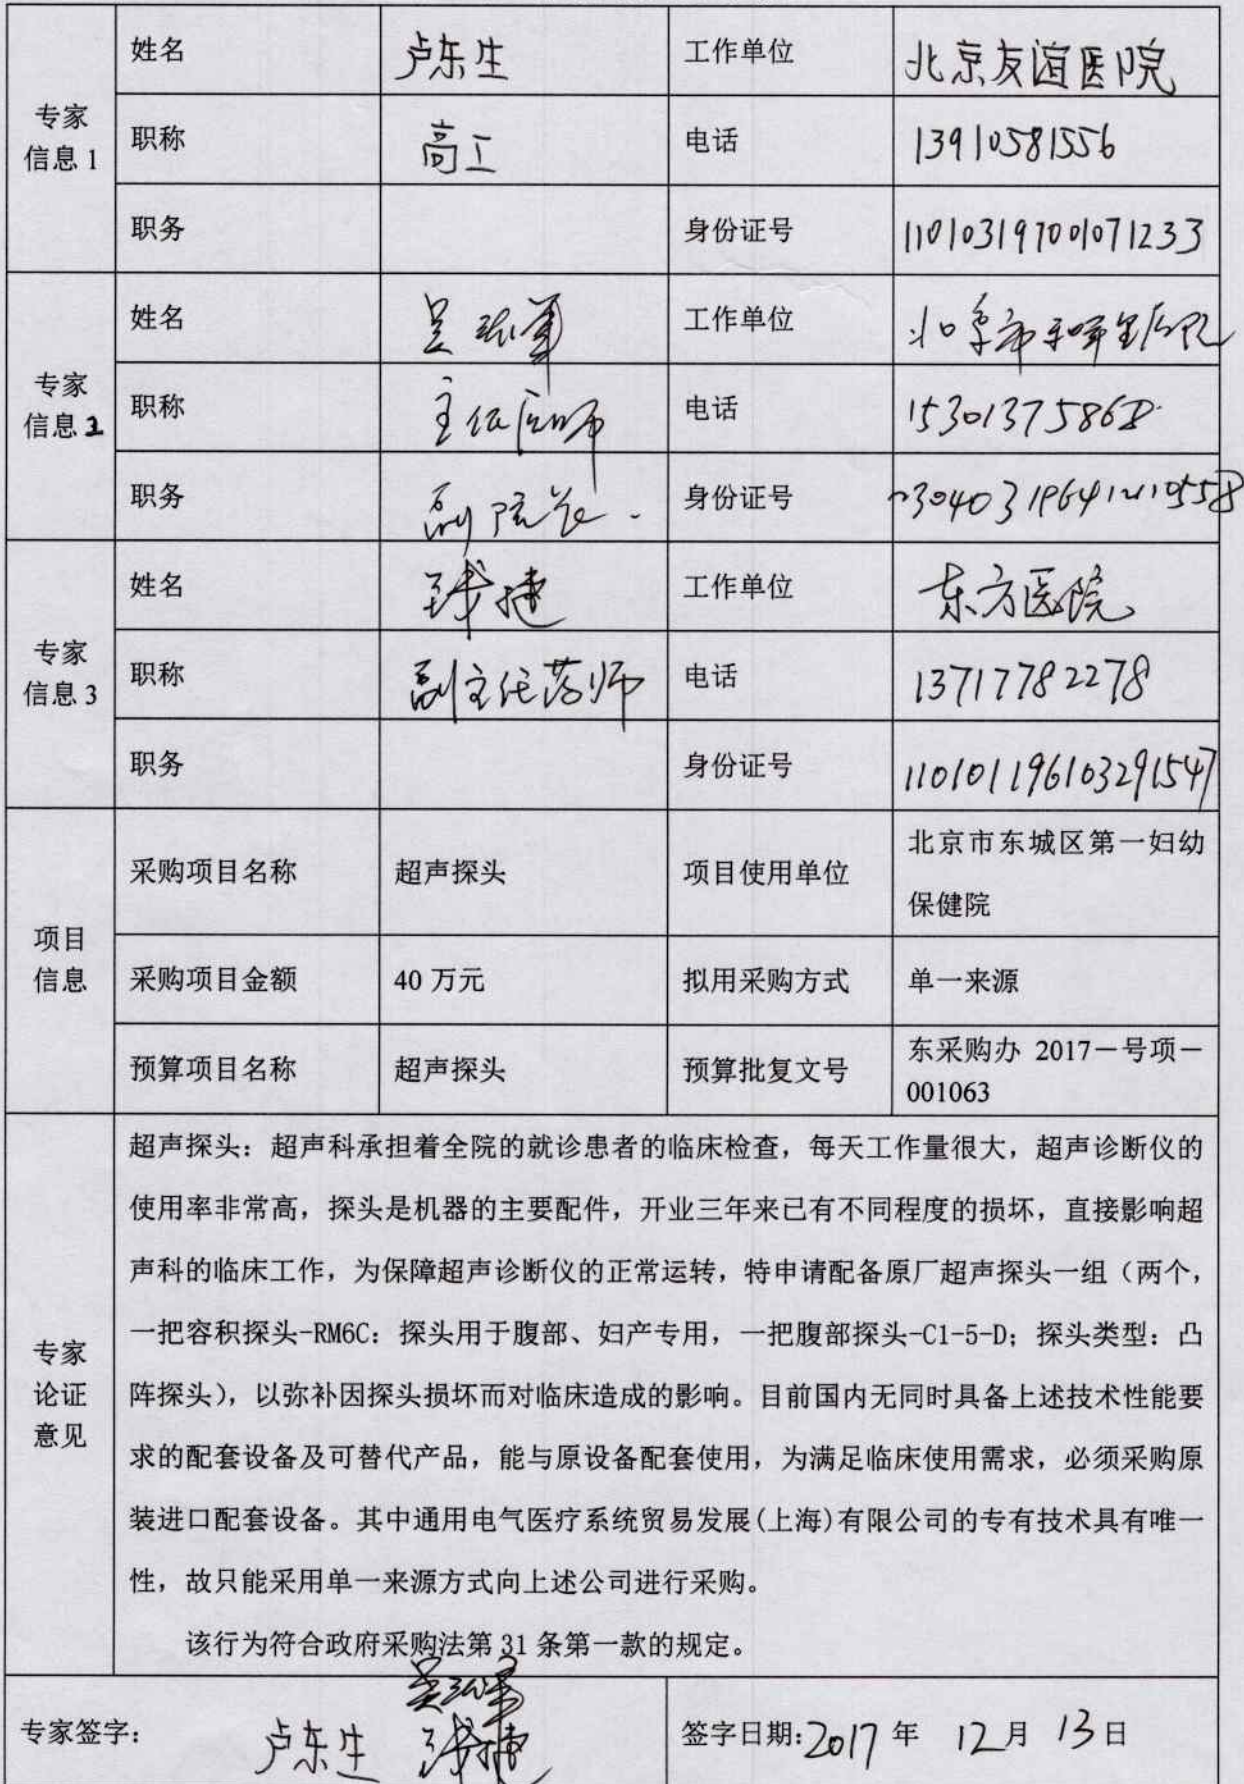 姓名 卢东生 工作单位 北京友谊医院
专家
信息1
职称 高工 电话 13910581556
职务 身份证号 110103197001071233
姓名 工作单位
专家
信息2
职称 主任医师 电话 15301375868
职务 副院长 身份证号
姓名 工作单位 东方医院
专家
信息3
职称 副主任药师 电话 13717782278
职务 身份证号 110101196103291547
项目
信息
采购项目名称 超声探头 项目使用单位 北京市东城区第一妇幼
保健院
采购项目金额 40 万元 拟用采购方式 单一来源
预算项目名称 超声探头 预算批复文号 东采购办 2017－号项－
001063
专家
论证
意见
超声探头：超声科承担着全院的就诊患者的临床检查，每天工作量很大，超声诊断仪的
使用率非常高，探头是机器的主要配件，开业三年来已有不同程度的损坏，直接影响超
声科的临床工作，为保障超声诊断仪的正常运转，特申请配备原厂超声探头一组（两个，
一把容积探头-RM6C：探头用于腹部、妇产专用，一把腹部探头-C1-5-D；探头类型：凸
阵探头），以弥补因探头损坏而对临床造成的影响。目前国内无同时具备上述技术性能要
求的配套设备及可替代产品，能与原设备配套使用，为满足临床使用需求，必须采购原
装进口配套设备。其中通用电气医疗系统贸易发展(上海)有限公司的专有技术具有唯一
性，故只能采用单一来源方式向上述公司进行采购。
该行为符合政府采购法第 31 条第一款的规定。
专家签字： 卢东生 签字日期：2017 年 12 月 13 日